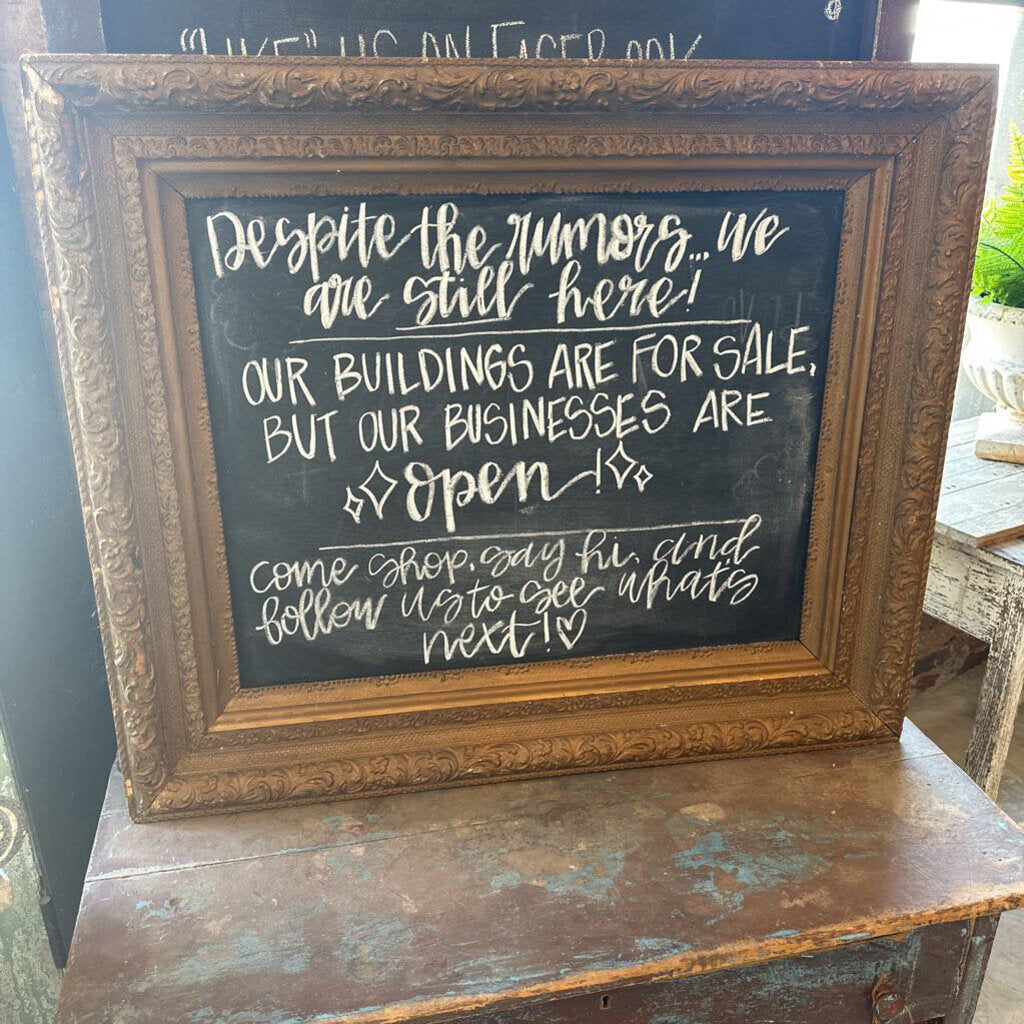 "LIKE" US ON FACEBOOK
Despite the rumors... we
are still here!
OUR BUILDINGS ARE FOR SALE,
BUT OUR BUSINESSES ARE
open!
come shop, say hi, and
follow us to see what's
next!♡